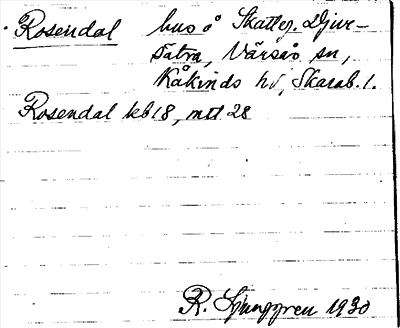 Rosendal hus å Skattej. Djur-
sätra, Värsås sn,
Kåkinds hd, Skarab. l.
Rosendal kb18, mtl 28
R. Ljunggren 1930